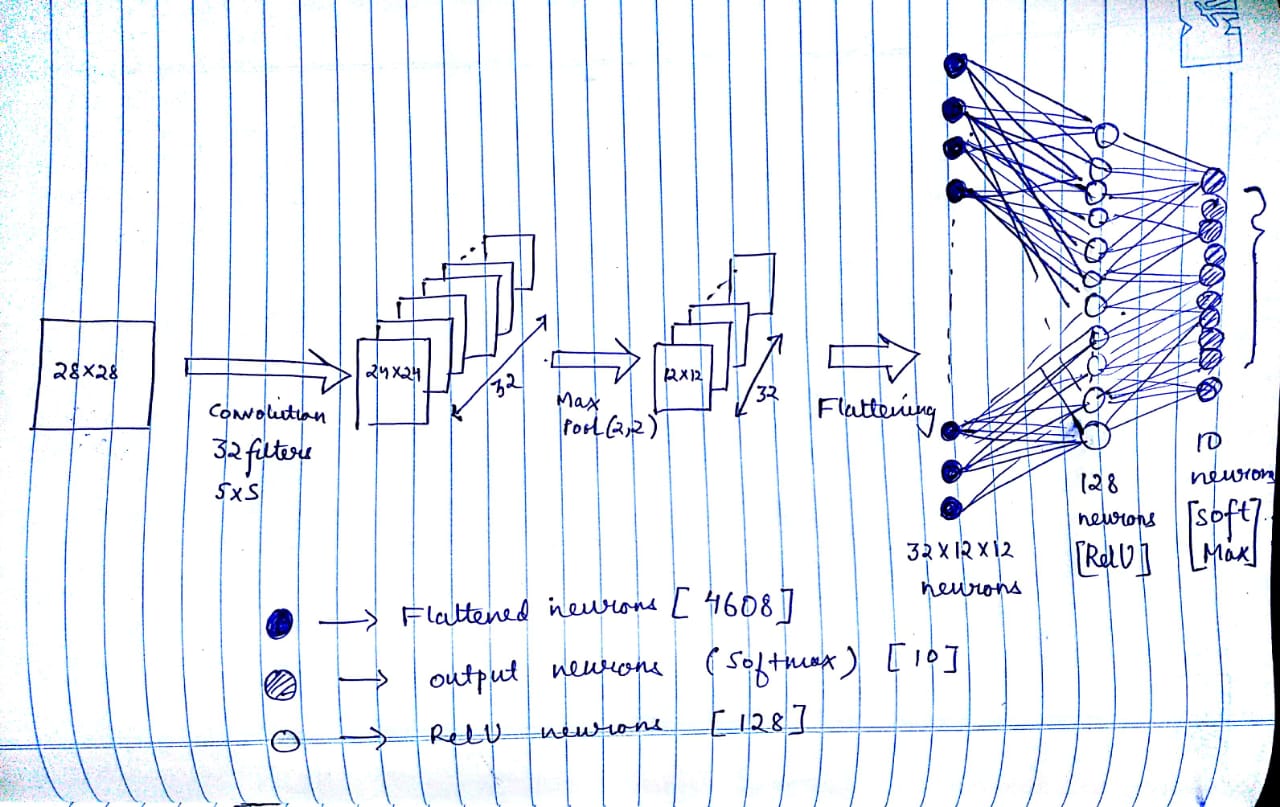 28×28
Convolution
32 filters
5×5
24×24
32
Max
Pool(2,2)
12×12
32
Flattening
32×12×12
neurons
128
neurons
[RelU]
10
neuron
[Soft]
[Max]
→ Flattened neurons [4608]
→ output neurons (Softmax) [10]
→ RelU neurons [128]